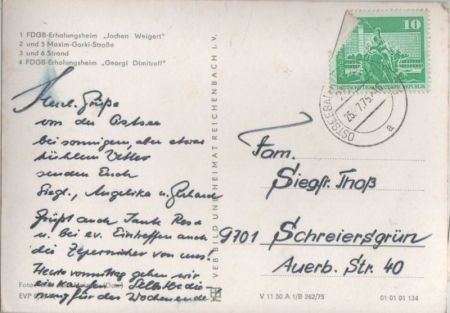 1 FDGB-Erholungsheim „Jochen Weigert"
2 und 5 Maxim-Gorki-Straße
3 und 6 Strand
4 FDGB-Erholungsheim „Georgi Dimitroff"
Herzl. Grüße
von der Ostsee
bei sonnigem, aber etwas
kühlem Wetter
senden Euch
Siegl., Angelika u. Gerhard
Grüßt auch Tante Rosa
u. bei ev. Eintreffen auch
die Zepernicker von uns!
Heute vormittag gehen wir
einkaufen, Selbstbedie-
nung für das Wochenende
EVP
VEB BILD UND HEIMAT REICHENBACH I. V.
10
OSTSEEBAD
25.7.75
a
Fam.
Siegfr. Thoß
9701 Schreiersgrün
Auerb. Str. 40
V 11 50 A 1/B 262/75
01 01 01 134